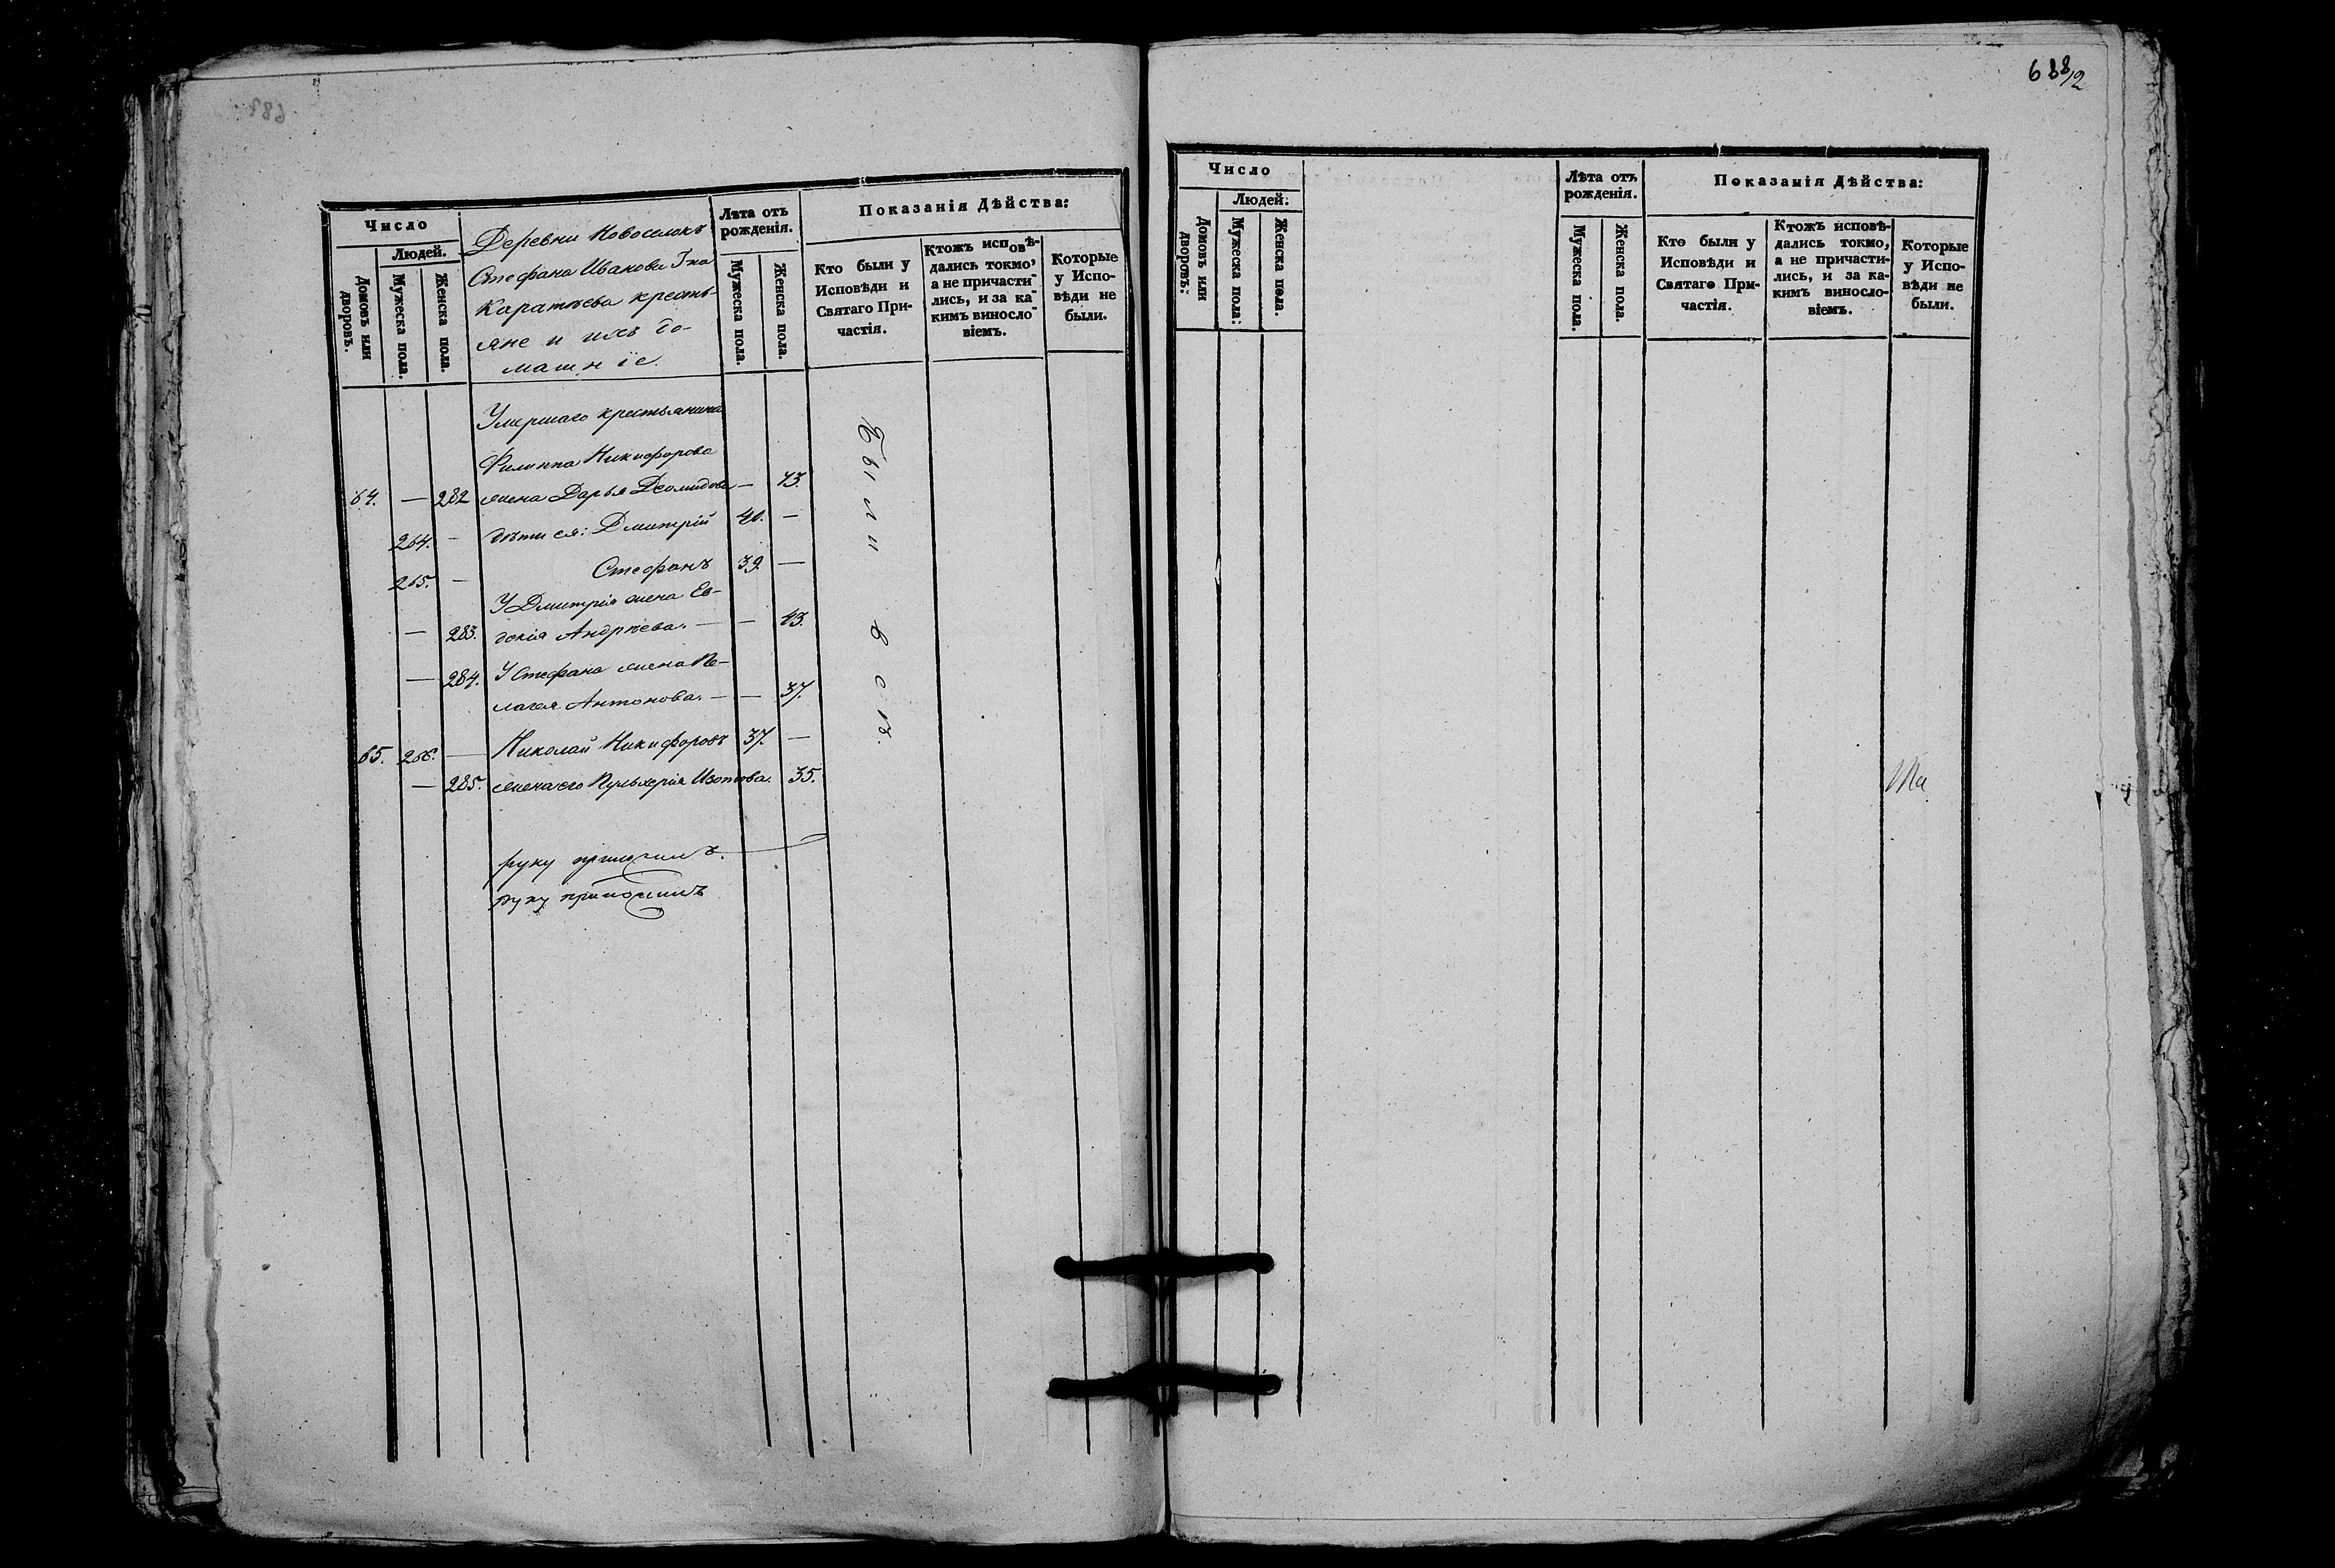 688/2
687
Число
Людей.
Домовъ или дворовъ.
Мужеска пола.
Женска пола.
Деревни Новоселокъ
Стефана Иванова Гна
Каратѣева кресть-
яне и ихъ до-
машніе.
Лѣта отъ рожденія.
Мужеска пола.
Женска пола.
Показанія Дѣйства:
Кто были у Исповѣди и Святаго Причастія.
Ктожъ исповѣ-
дались токмо,
а не причасти-
лись, и за ка-
кимъ виносло-
віемъ.
Которые
у Испо-
вѣди не
были.
Умершаго крестьянина
Филиппа Никифорова
64. — 282 жена Дарья Деомидова — 73.
264. - дѣти ея: Дмитрій 40. —
265. — Стефанъ 39. —
У Дмитрія жена Ев-
— 283. докія Андрѣева. — — 43.
— 284. У Стефана жена Пе-
лагея Антонова. — — 37.
65. 266. — Николай Никифоровъ 37. —
— 285. жена его Пульхерія Изотова. 35.
Были всѣ.
руку приложилъ.
руку приложилъ
Число
Людей.
Домовъ или дворовъ.
Мужеска пола.
Женска пола.
Лѣта отъ
рожденія.
Мужеска пола.
Женска пола.
Показанія Дѣйства:
Кто были у
Исповѣди и
Святаго При-
частія.
Ктожъ исповѣ-
дались токмо,
а не причасти-
лись, и за ка-
кимъ виносло-
віемъ.
Которые
у Испо-
вѣди не
были.